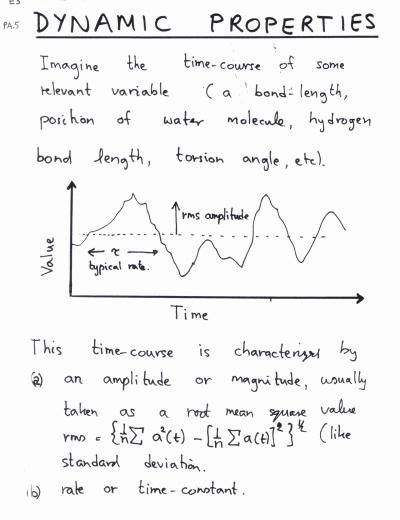 E3
PA.5 DYNAMIC PROPERTIES
Imagine the time-course of some
relevant variable (a bond-length,
position of water molecule, hydrogen
bond length, torsion angle, etc).
rms amplitude
← τ →
typical rate.
Value
Time
This time-course is characterizes by
(a) an amplitude or magnitude, usually
taken as a root mean square value
rms = {1/n ∑ a²(t) - [1/n ∑ a(t)]²}^½ (like
standard deviation.
(b) rate or time-constant.